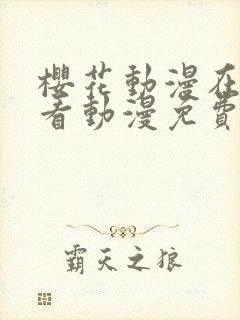 櫻花動漫在
看動漫免費
霸天之狼